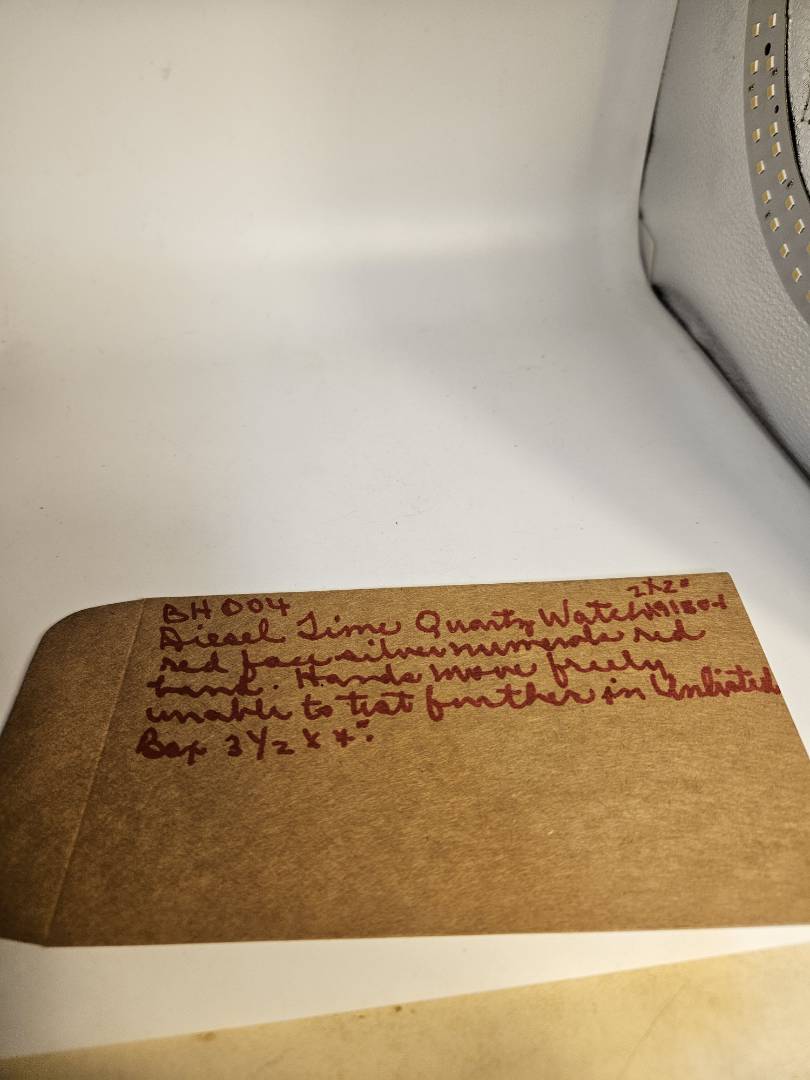 BH 004
2x2"
Diesel Time Quartz Watch
red face silver numerals red
band. Hands move freely
unable to test further in Unlisted
Box 3 1/2 x 4".